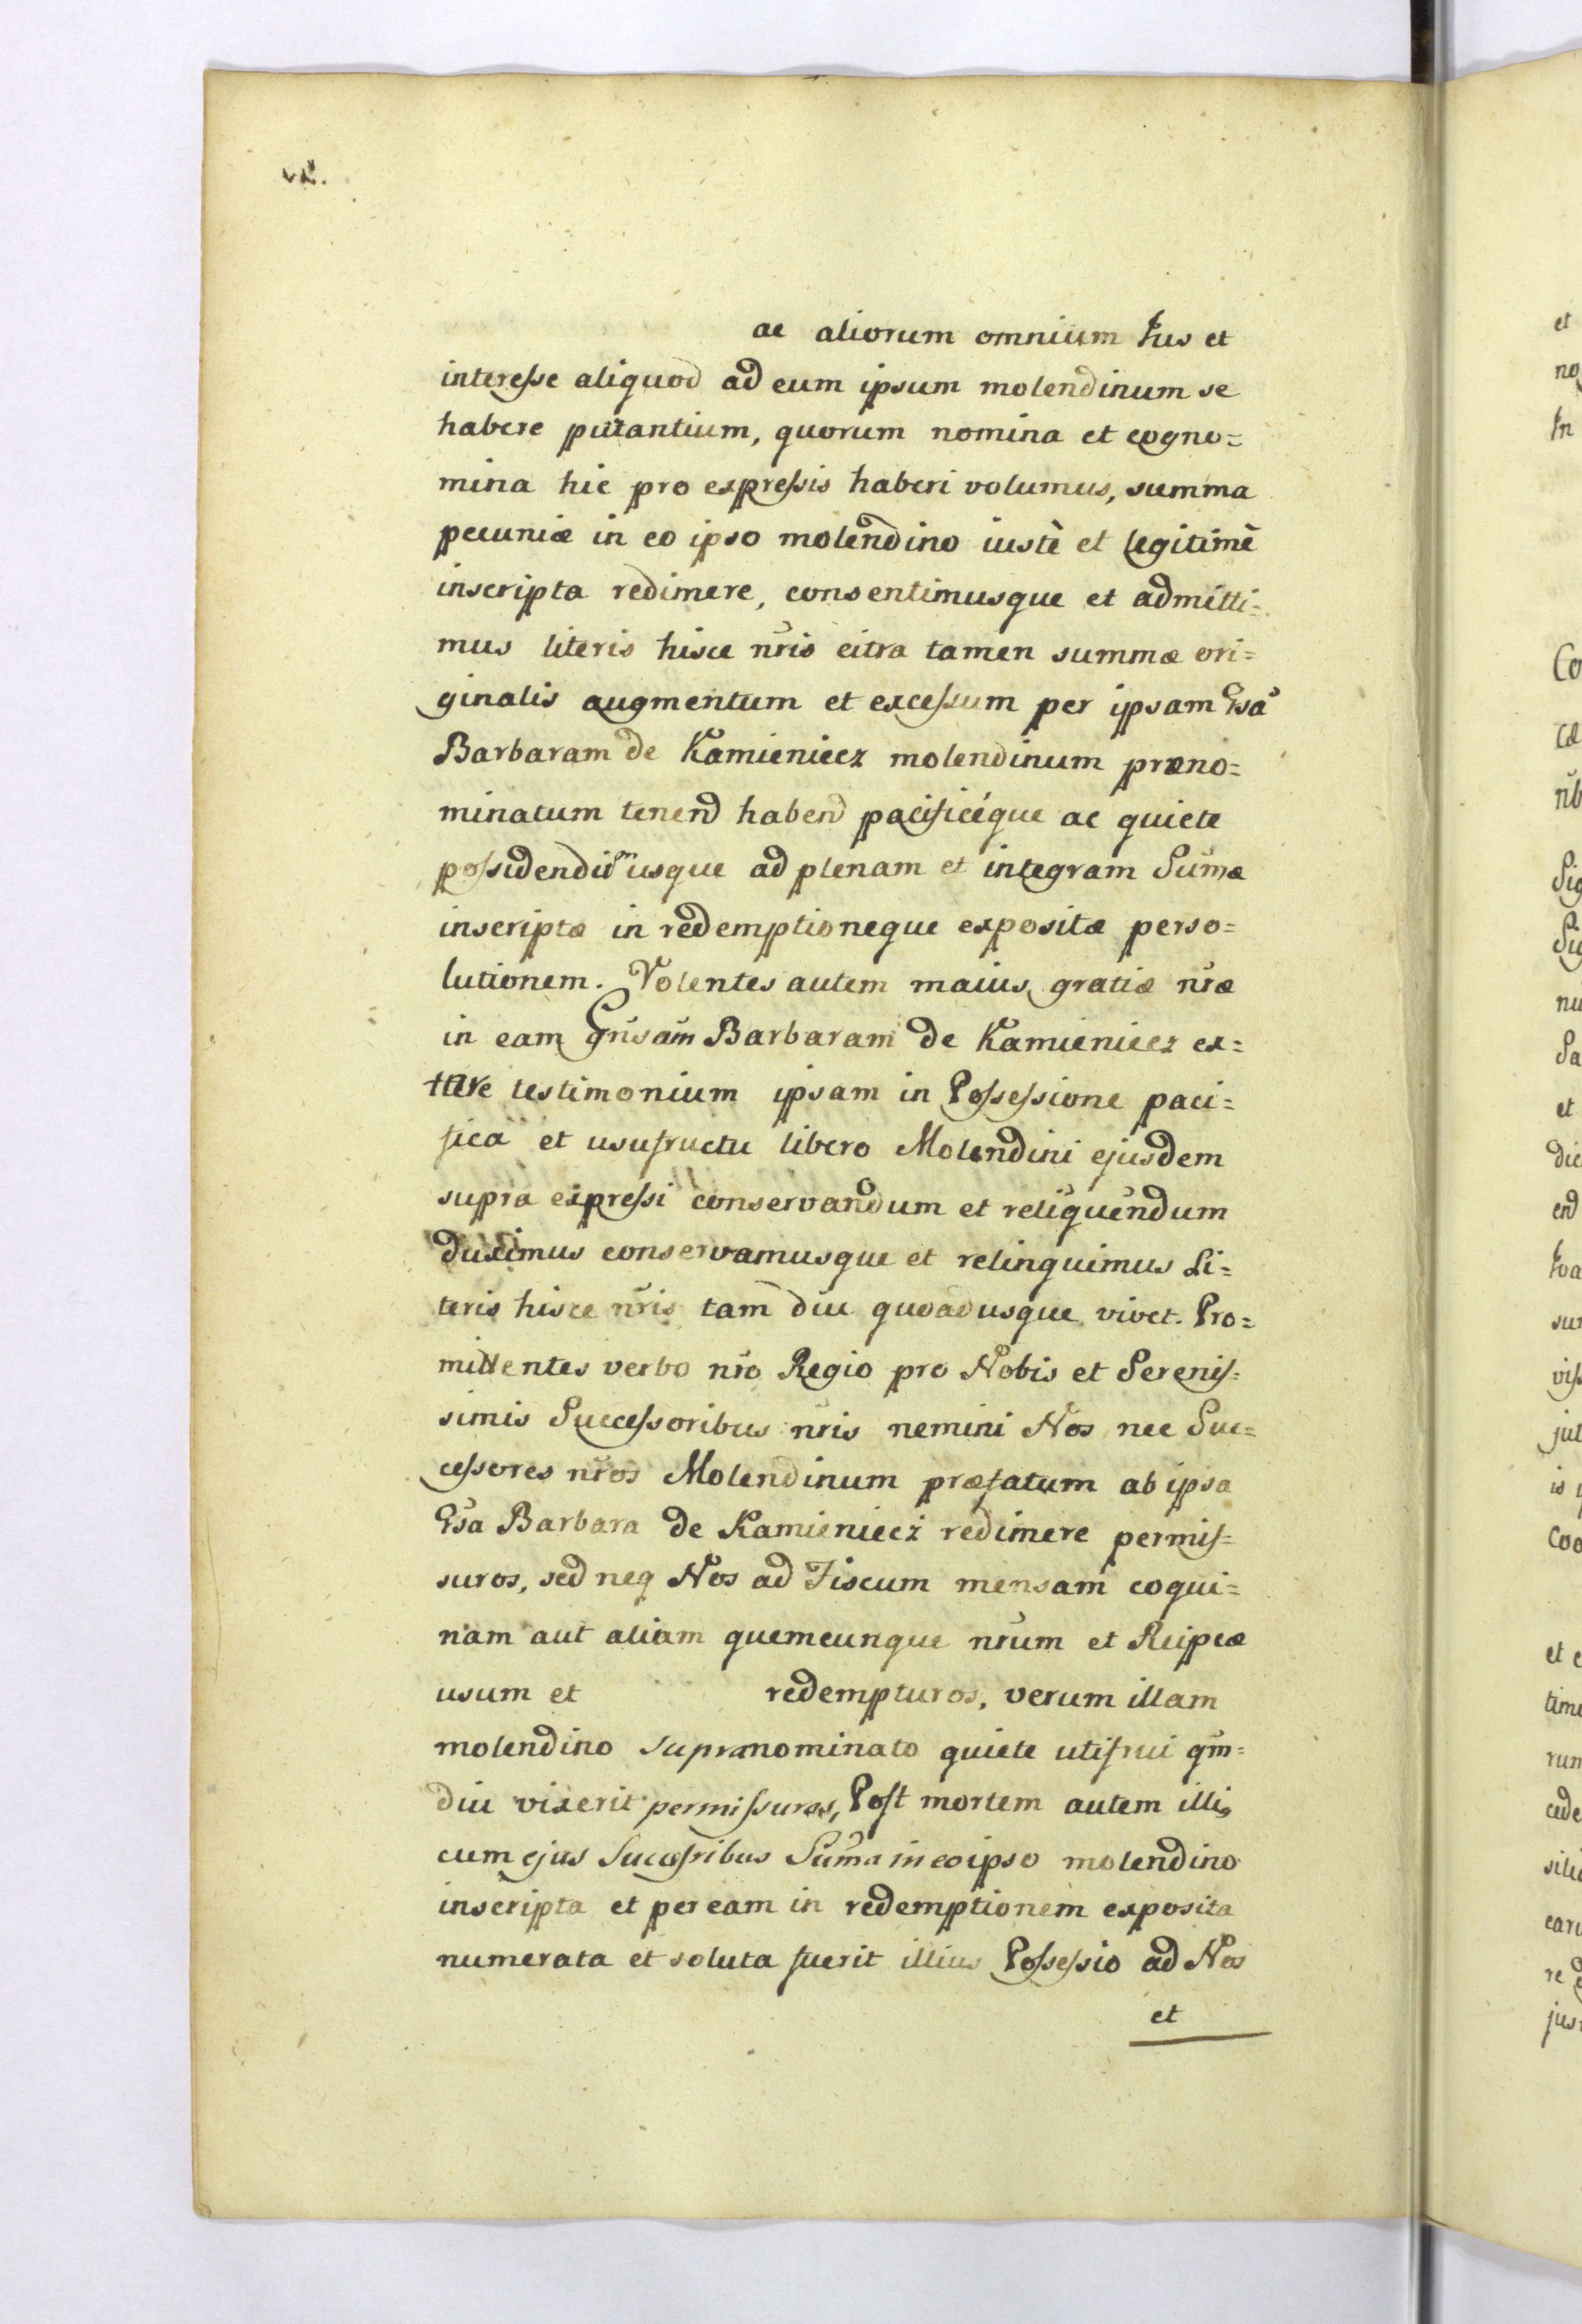 ac aliorum omnium Jus et
interesse aliquod ad eum ipsum molendinum se
habere putantium, quorum nomina et cogno=
mina hic pro expressis haberi volumus, summa
pecuniæ in eo ipso molendino iustè et legitimè
inscripta redimere, consentimusque et admitti=
mus literis hisce nris citra tamen summæ ori=
ginalis augmentum et excessum per ipsam Gsa
Barbaram de Kamieniecz molendinum præno=
minatum tenend habend pacificéque ac quiete
possidendum usque ad plenam et integram Sumæ
inscriptæ in redemptioneque expositæ perso=
lutionem. Volentes autem maius gratiæ nræ
in eam Gnsam Barbaram de Kamieniecz ex=
tare testimonium ipsam in Possessione paci=
fica et usufructu libero Molendini ejusdem
supra expressi conservandum et reliquendum
duximus conservamusque et relinquimus Li=
teris hisce nris tam diu quoadusque vivet. Pro=
mittentes verbo nro Regio pro Nobis et Serenis=
simis Successoribus nris nemini Nos nec Suc=
cessores nros Molendinum præfatum ab ipsa
Gsa Barbara de Kamieniecz redimere permis=
suros, sed neq Nos ad Fiscum mensam coqui=
nam aut aliam quemcunque nrum et Reipcæ
usum et redempturos, verum illam
molendino supranominato quiete utifrui qm=
diu vixerit permissuros, Post mortem autem illis
cum ejus Sucessribus Suma in eo ipso molendino
inscripta et per eam in redemptionem exposita
numerata et soluta fuerit illius Possessio ad Nos
et